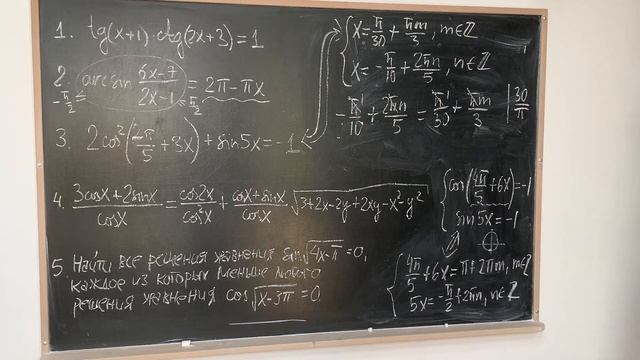 1. tg(x+1)·ctg(2x+3)=1
2. arcsin (6x-7)/(2x-1) = 2π-πx
-π/2 ≤ ≤ π/2
3. 2cos²(4π/5 + 3x) + sin5x = -1
4. (3cosx+2sinx)/cosx = cos2x/cos²x + (cosx+sinx)/cosx √(3+2x-2y+2xy-x²-y²)
5. Найти все решения уравнения sin√(4x-π)=0,
каждое из которых меньше любого
решения уравнения cos√(x-3π)=0.
{ x=π/30 + πm/3, m∈ℤ
x=-π/10 + 2πn/5, n∈ℤ
-π/10 + 2πn/5 = π/30 + πm/3 | 30/π
{ cos(4π/5+6x)=-1
sin5x=-1
{ 4π/5+6x=π+2πm, m∈ℤ
5x=-π/2+2πn, n∈ℤ